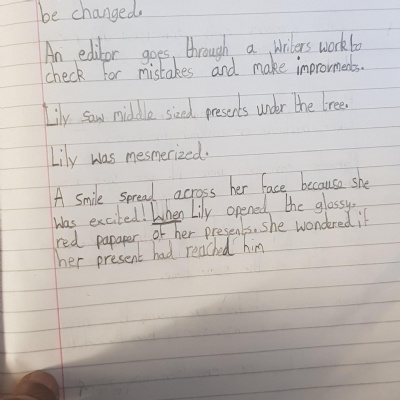 be changed.
An editor goes through a writers work to
check for mistakes and make improvments.
Lily saw middle sized presents under the tree.
Lily was mesmerized.
A smile spread across her face because she
was excited! When Lily opened the glossy.
red papaper of her presents. she wondered if
her present had reached him